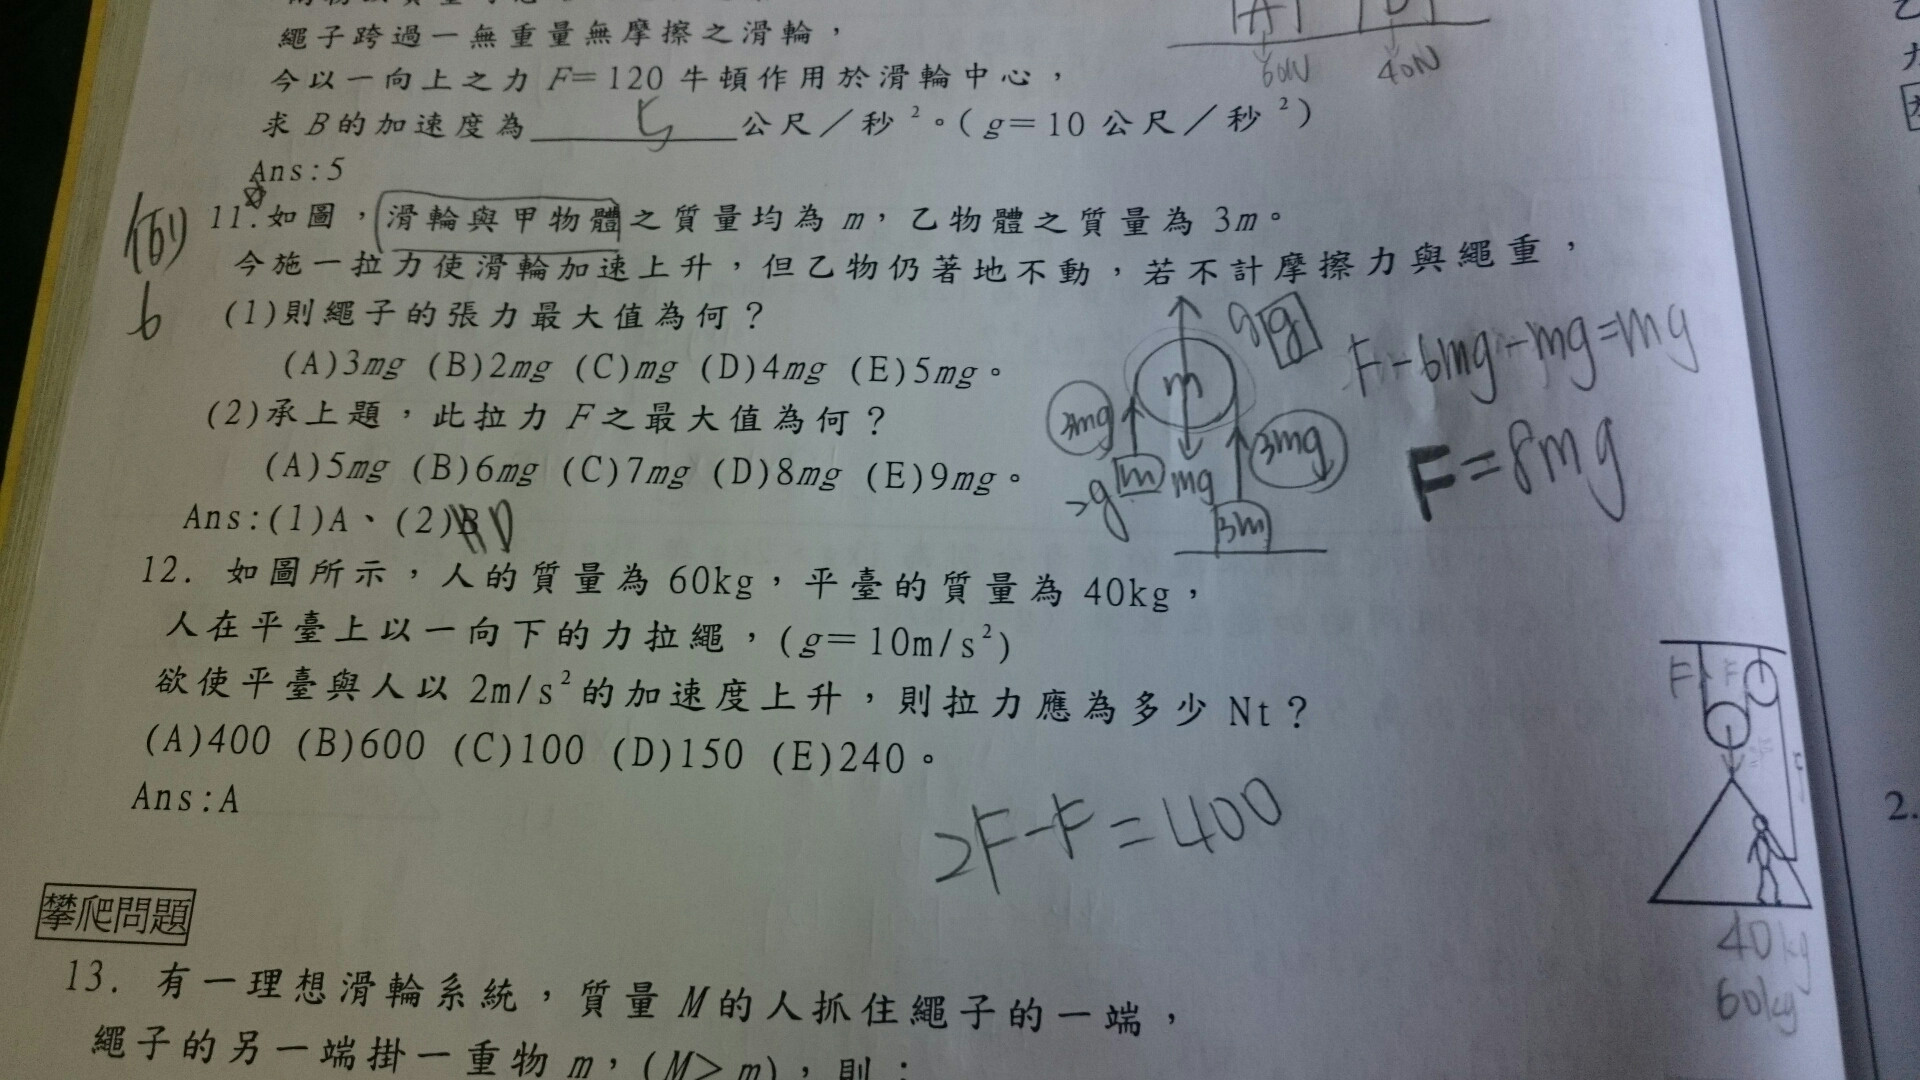 繩子跨過一無重量無摩擦之滑輪，
今以一向上之力 F=120 牛頓作用於滑輪中心，
求 B 的加速度為 5 公尺／秒²。(g=10 公尺／秒²)
Ans:5
60N 40N
例
6
11.如圖，滑輪與甲物體之質量均為 m，乙物體之質量為 3m。
今施一拉力使滑輪加速上升，但乙物仍著地不動，若不計摩擦力與繩重，
(1)則繩子的張力最大值為何？
(A)3mg (B)2mg (C)mg (D)4mg (E)5mg。
(2)承上題，此拉力 F 之最大值為何？
(A)5mg (B)6mg (C)7mg (D)8mg (E)9mg。
Ans:(1)A、(2) D
g
m
3mg
3mg
m
mg
2g
3m
F-6mg-mg=mg
F=8mg
12. 如圖所示，人的質量為 60kg，平臺的質量為 40kg，
人在平臺上以一向下的力拉繩，(g=10m/s²)
欲使平臺與人以 2m/s²的加速度上升，則拉力應為多少 Nt？
(A)400 (B)600 (C)100 (D)150 (E)240。
Ans:A
2F-F=400
F F
40kg
60kg
攀爬問題
13. 有一理想滑輪系統，質量 M 的人抓住繩子的一端，
繩子的另一端掛一重物 m，(M> m)，則：
2.